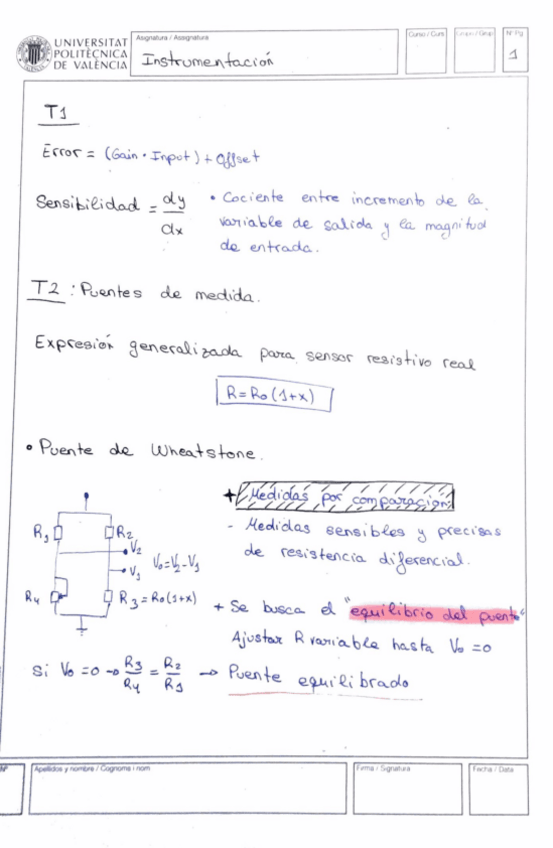 UNIVERSITAT
POLITÈCNICA
DE VALÈNCIA
Asignatura / Assignatura
Instrumentación
Curso / Curs
Grupo / Grup
Nº Pg.
1
T1
Error = (Gain · Input) + Offset
Sensibilidad = dy/dx
• Cociente entre incremento de la
variable de salida y la magnitud
de entrada.
T2 : Puentes de medida.
Expresión generalizada para sensor resistivo real
R = R0 (1+x)
• Puente de Wheatstone.
+ Medidas por comparación
- Medidas sensibles y precisas
de resistencia diferencial.
R1
R2
V2
V1
V0 = V2 - V1
R4
R3 = R0(1+x)
+ Se busca el "equilibrio del puente"
Ajustar R variable hasta V0 = 0
Si V0 = 0 → R3/R4 = R2/R1 → Puente equilibrado
Nº
Apellidos y nombre / Cognoms i nom
Firma / Signatura
Fecha / Data